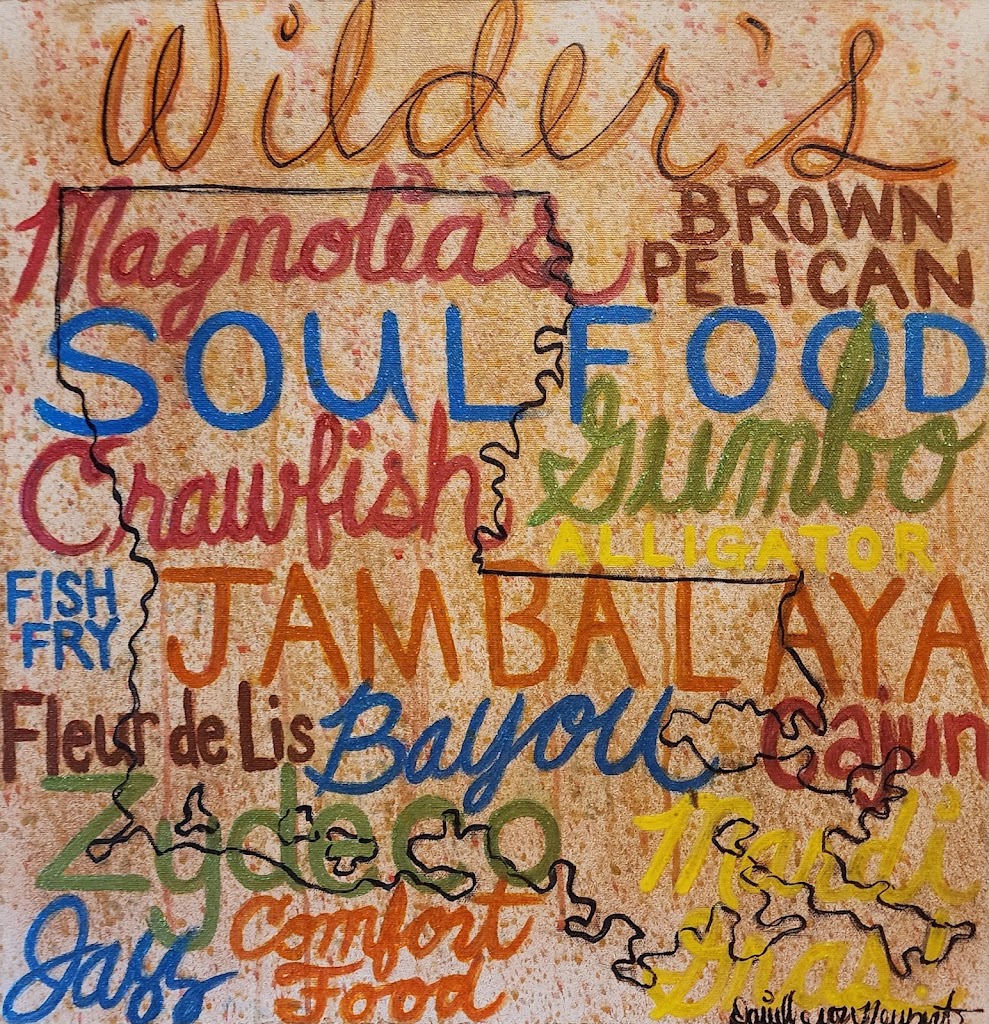 Wilder's
Magnolia's
BROWN
PELICAN
SOUL FOOD
Crawfish
Gumbo
ALLIGATOR
FISH
FRY
JAMBALAYA
Fleur de Lis
Bayou
Cajun
Zydeco
Mardi
Gras!
Jazz
Comfort
Food